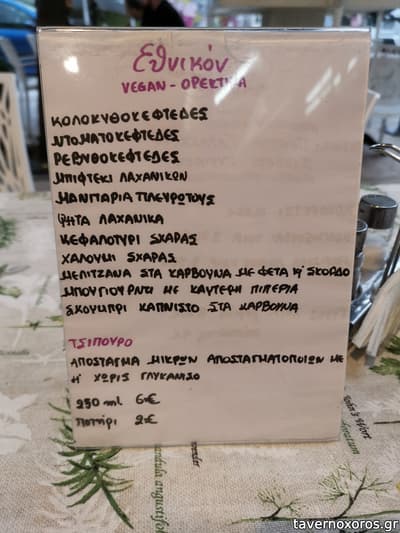 Εθνικόν
VEGAN - ΟΡΕΚΤΙΚΑ
ΚΟΛΟΚΥΘΟΚΕΦΤΕΔΕΣ
ΝΤΟΜΑΤΟΚΕΦΤΕΔΕΣ
ΡΕΒΥΘΟΚΕΦΤΕΔΕΣ
ΜΠΙΦΤΕΚΙ ΛΑΧΑΝΙΚΩΝ
ΜΑΝΙΤΑΡΙΑ ΠΛΕΥΡΩΤΟΥΣ
ΨΗΤΑ ΛΑΧΑΝΙΚΑ
ΚΕΦΑΛΟΤΥΡΙ ΣΧΑΡΑΣ
ΧΑΛΟΥΜΙ ΣΧΑΡΑΣ
ΜΕΛΙΤΖΑΝΑ ΣΤΑ ΚΑΡΒΟΥΝΑ ΜΕ ΦΕΤΑ Κ' ΣΚΟΡΔΟ
ΜΠΟΥΓΙΟΥΡΝΤΙ ΜΕ ΚΑΥΤΕΡΗ ΠΙΠΕΡΙΑ
ΣΚΟΥΜΠΡΙ ΚΑΠΝΙΣΤΟ ΣΤΑ ΚΑΡΒΟΥΝΑ
ΤΣΙΠΟΥΡΟ
ΑΠΟΣΤΑΓΜΑ ΜΙΚΡΩΝ ΑΠΟΣΤΑΓΜΑΤΟΠΟΙΩΝ ΜΕ
Η' ΧΩΡΙΣ ΓΛΥΚΑΝΙΣΟ
250 ml 6€
ποτήρι 2€
tavernoxoros.gr